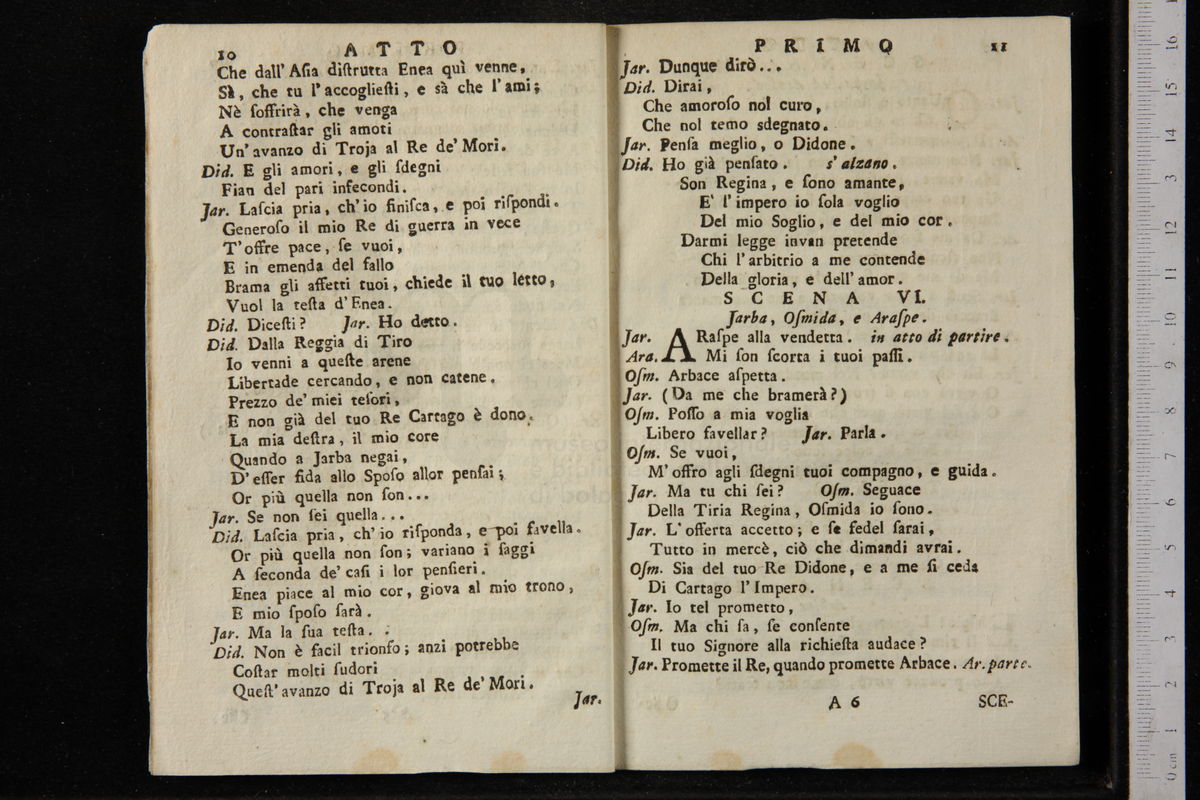 10 ATTO
Che dall' Aſia diſtrutta Enea quì venne,
Sà, che tu l' accoglieſti, e sà che l' ami;
Nè ſoffrirà, che venga
A contraſtar gli amoti
Un' avanzo di Troja al Re de' Mori.
Did. E gli amori, e gli ſdegni
Fian del pari infecondi.
Jar. Laſcia pria, ch' io finiſca, e poi riſpondi.
Generoſo il mio Re di guerra in vece
T' offre pace, ſe vuoi,
E in emenda del fallo
Brama gli affetti tuoi, chiede il tuo letto,
Vuol la teſta d' Enea.
Did. Diceſti? Jar. Ho detto.
Did. Dalla Reggia di Tiro
Io venni a queſte arene
Libertade cercando, e non catene.
Prezzo de' miei teſori,
E non già del tuo Re Cartago è dono.
La mia deſtra, il mio core
Quando a Jarba negai,
D' eſſer fida allo Spoſo allor penſai;
Or più quella non ſon...
Jar. Se non ſei quella...
Did. Laſcia pria, ch' io riſponda, e poi favella.
Or più quella non ſon; variano i ſaggi
A ſeconda de' caſi i lor penſieri.
Enea piace al mio cor, giova al mio trono,
E mio ſpoſo ſarà.
Jar. Ma la ſua teſta. .
Did. Non è facil trionfo; anzi potrebbe
Coſtar molti ſudori
Queſt' avanzo di Troja al Re de' Mori.
Jar.
PRIMO 11
Jar. Dunque dirò...
Did. Dirai,
Che amoroſo nol curo,
Che nol temo sdegnato.
Jar. Penſa meglio, o Didone.
Did. Ho già penſato. s' alzano.
Son Regina, e ſono amante,
E' l' impero io ſola voglio
Del mio Soglio, e del mio cor.
Darmi legge invan pretende
Chi l' arbitrio a me contende
Della gloria, e dell' amor.
SCENA VI.
Jarba, Oſmida, e Araſpe.
Jar. ARaſpe alla vendetta. in atto di partire.
Ara. Mi ſon ſcorta i tuoi paſſi.
Oſm. Arbace aſpetta.
Jar. (Da me che bramerà?)
Oſm. Poſſo a mia voglia
Libero favellar? Jar. Parla.
Oſm. Se vuoi,
M' offro agli ſdegni tuoi compagno, e guida.
Jar. Ma tu chi ſei? Oſm. Seguace
Della Tiria Regina, Oſmida io ſono.
Jar. L' offerta accetto; e ſe fedel ſarai,
Tutto in mercè, ciò che dimandi avrai.
Oſm. Sia del tuo Re Didone, e a me ſi ceda
Di Cartago l' Impero.
Jar. Io tel prometto,
Oſm. Ma chi ſa, ſe conſente
Il tuo Signore alla richieſta audace?
Jar. Promette il Re, quando promette Arbace. Ar.parte.
A 6 SCE-
0 cm 1 2 3 4 5 6 7 8 9 10 11 12 13 14 15 16